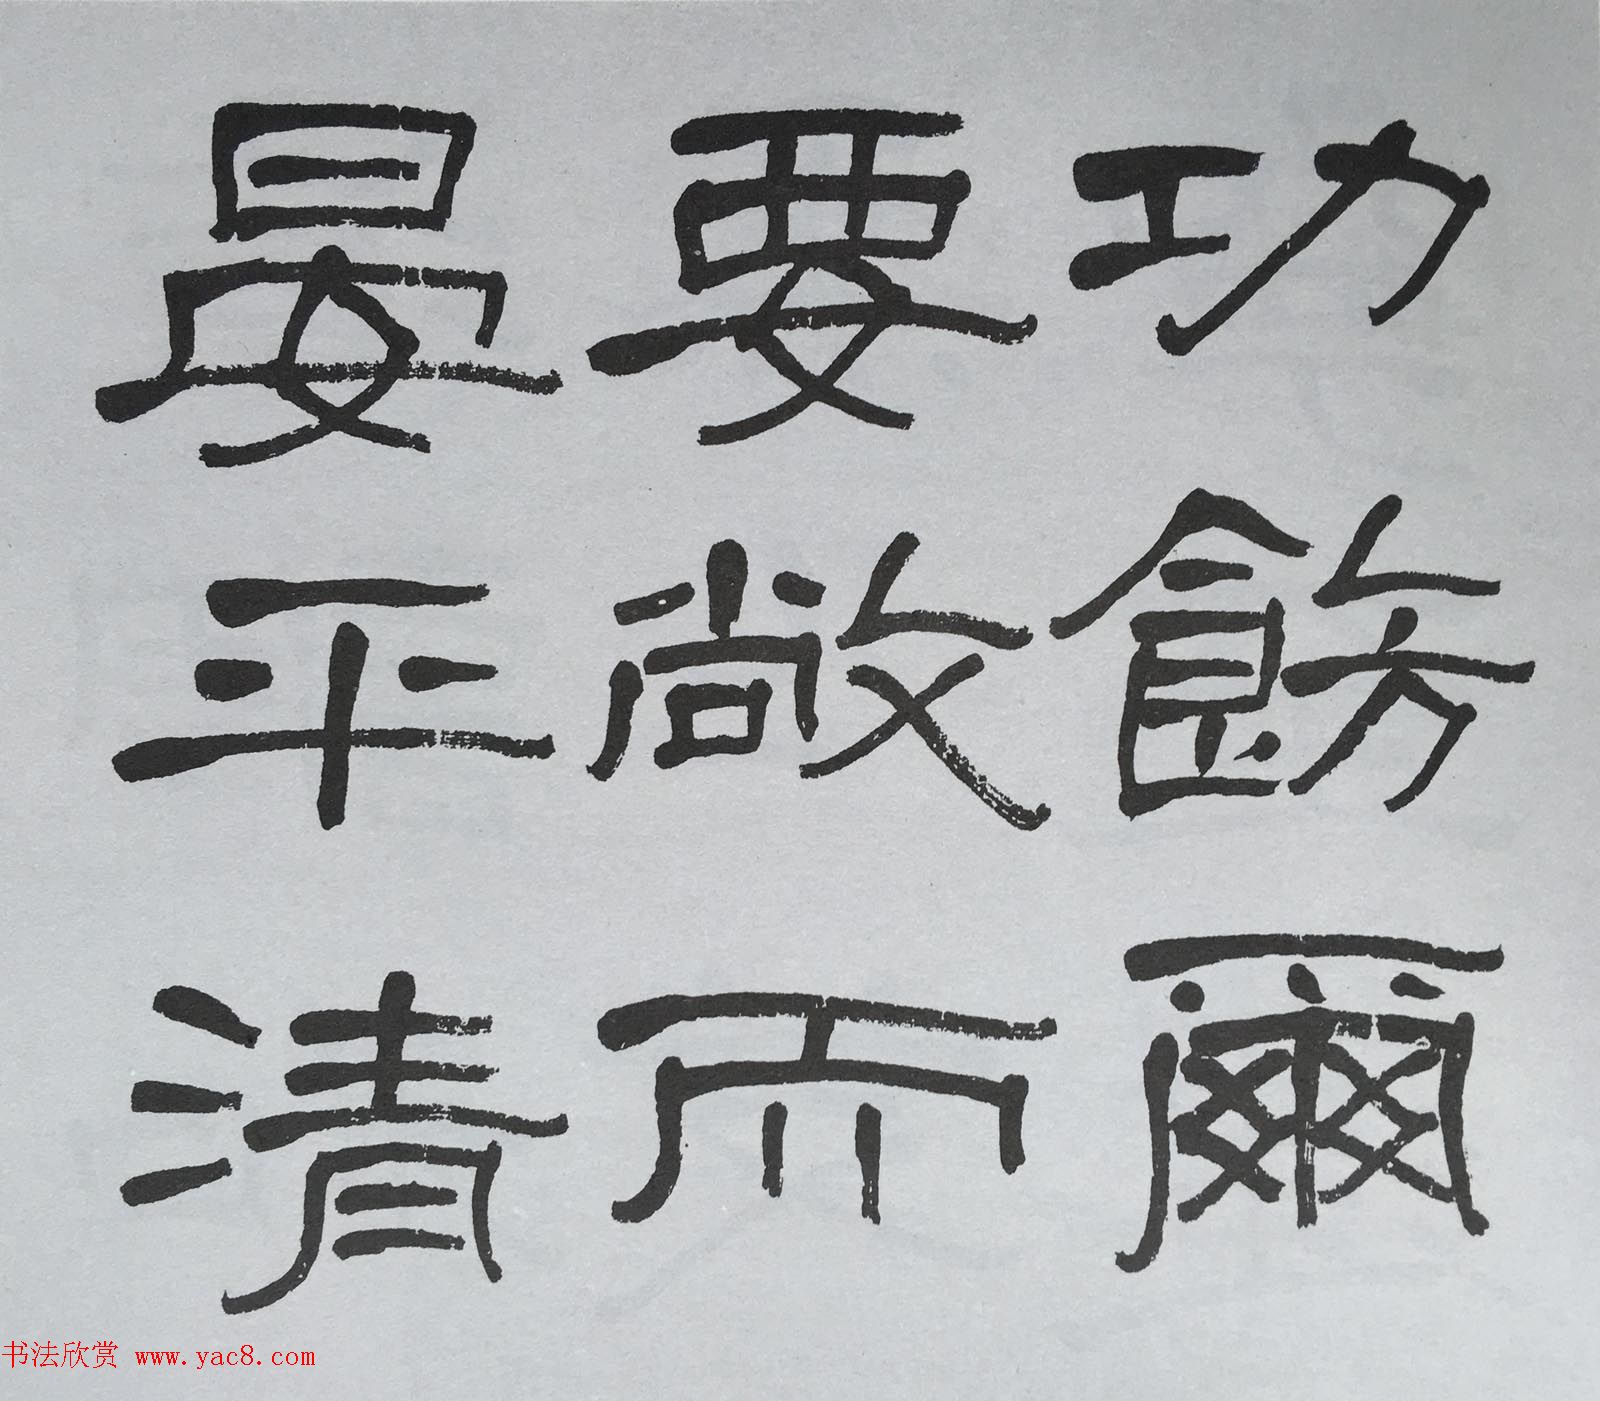 功飭爾
要敞而
晏平清
书法欣赏 www.yac8.com